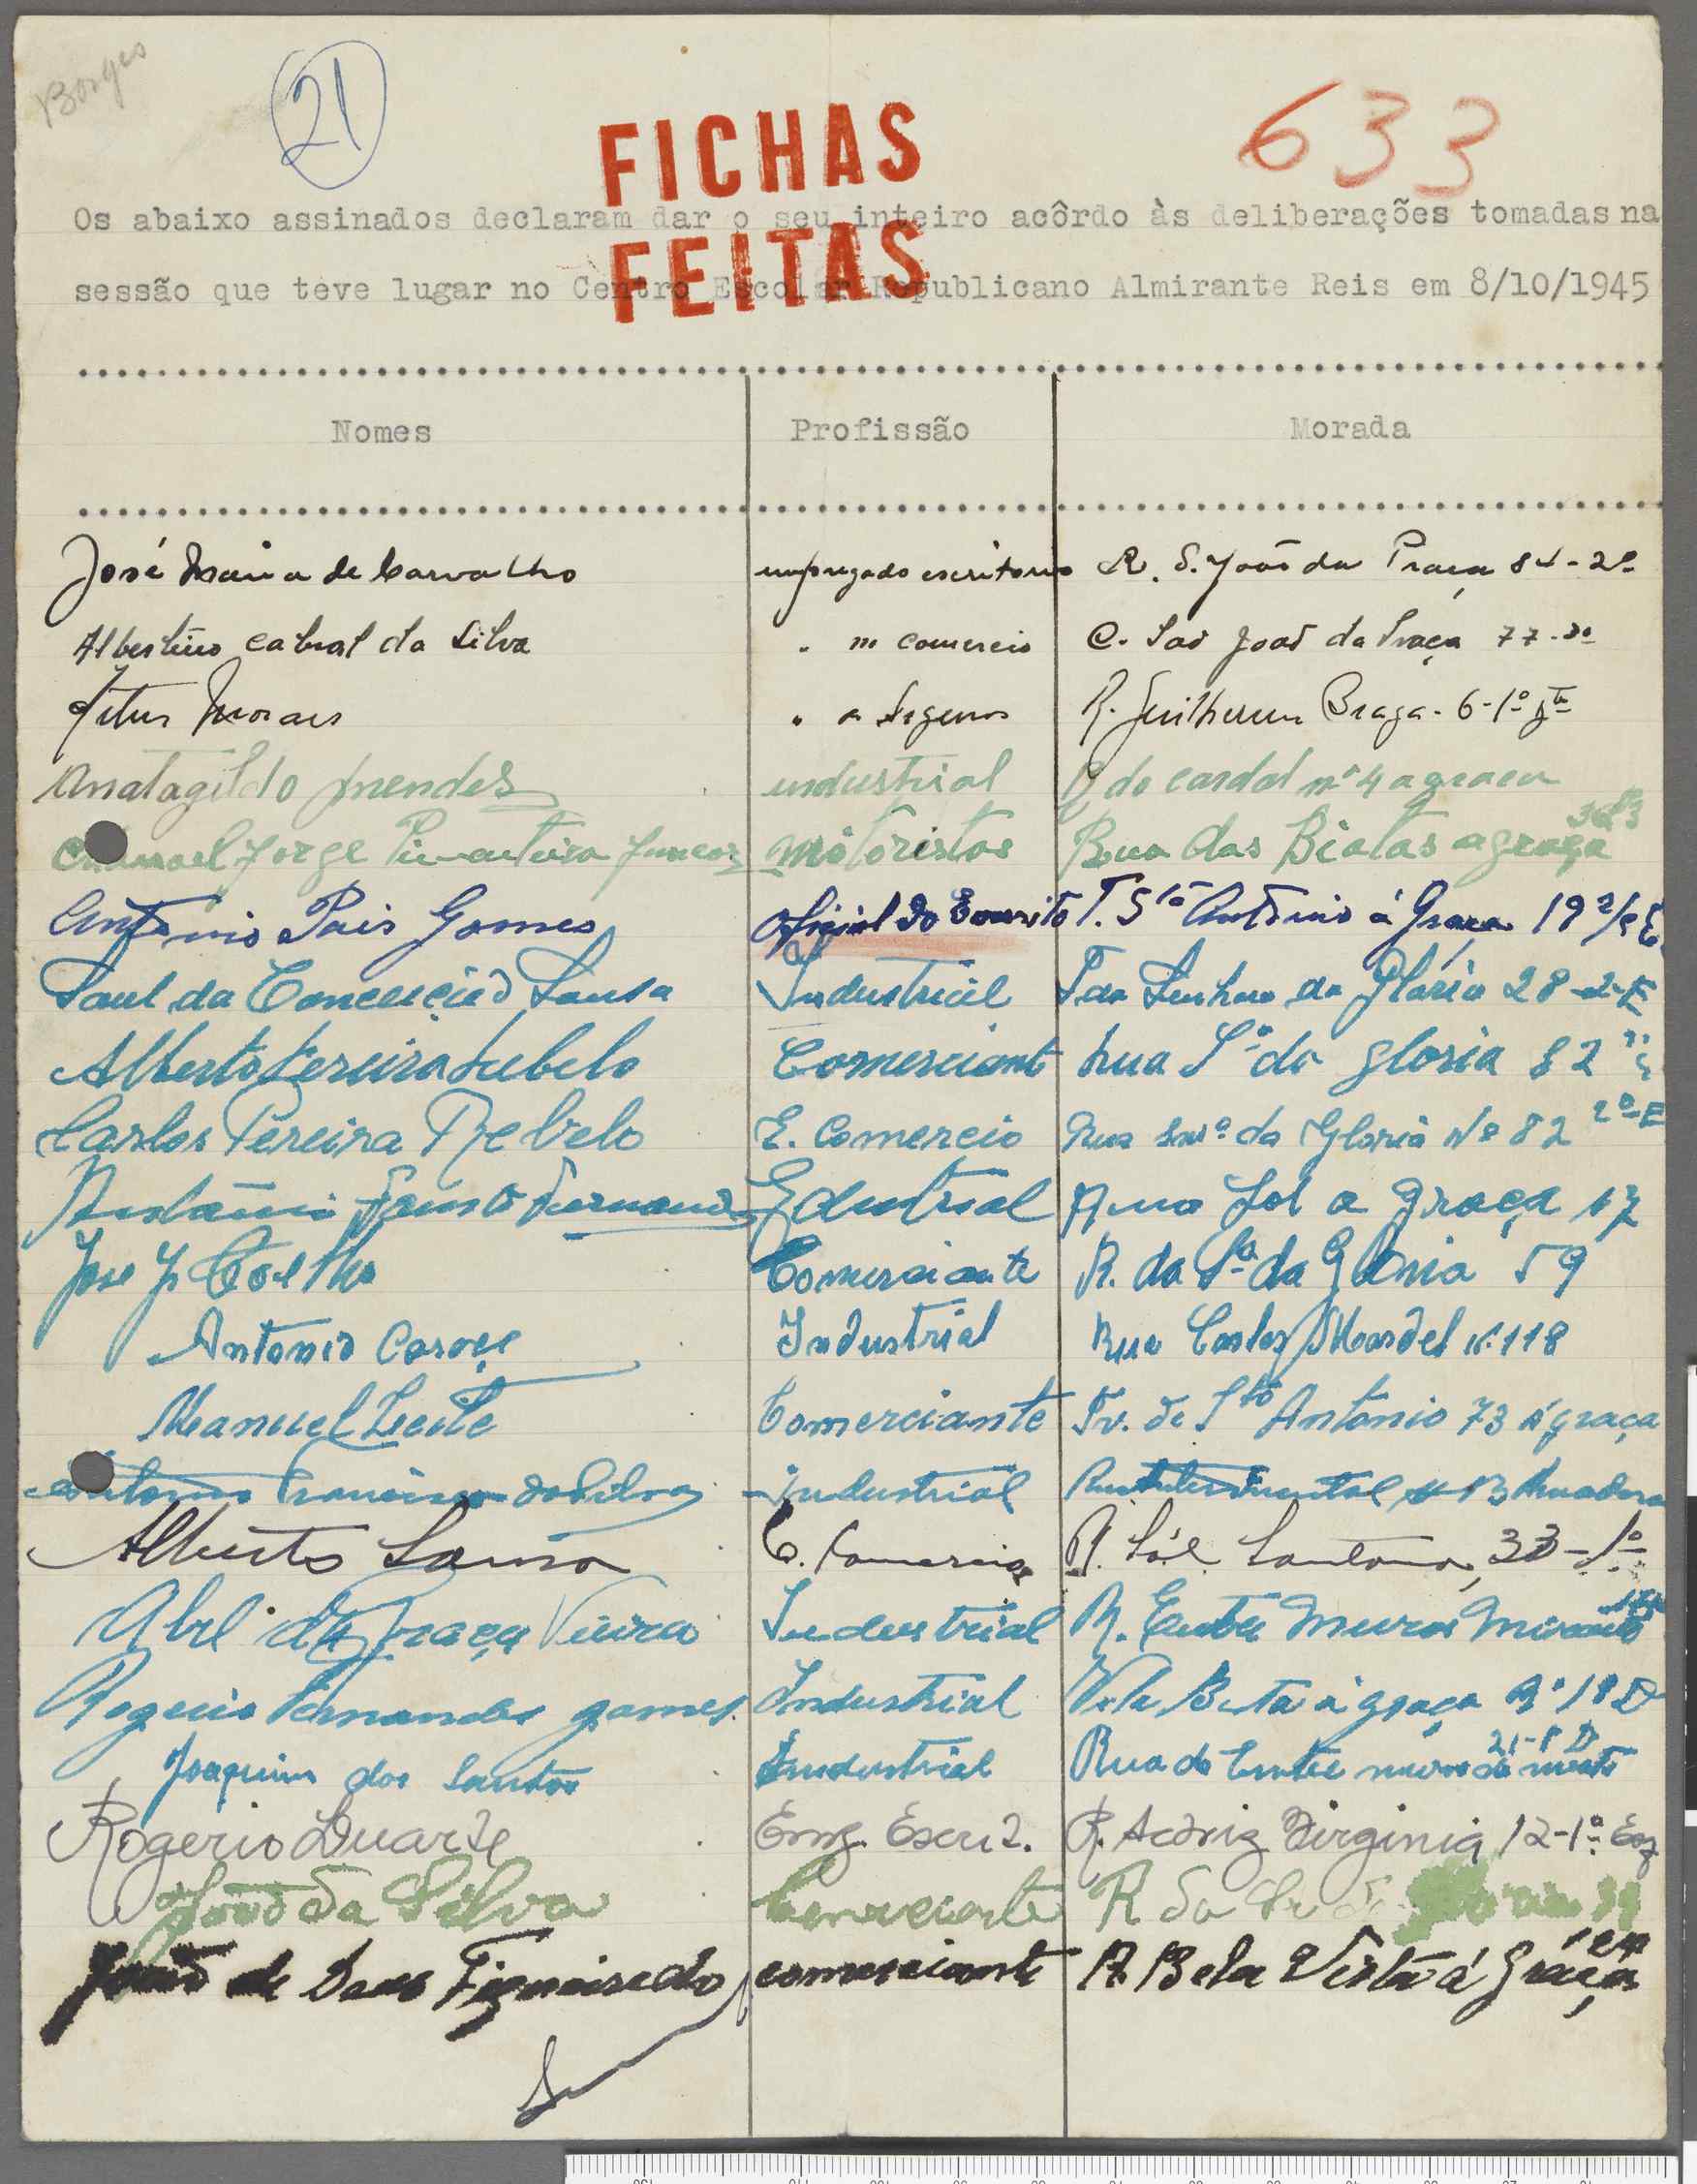 Borges
21
FICHAS
633
Os abaixo assinados declaram dar o seu inteiro acôrdo às deliberações tomadas na
FEITAS
sessão que teve lugar no Centro Escolar Republicano Almirante Reis em 8/10/1945
Nomes Profissão Morada
José Maria de Carvalho empregado escritorio R. S. João da Praça 84-2º
Albertino Cabral da Silva " m comercio C. São João da Praça 77-
Artur Moraes " a Seguros R. Guilherme Braga-6-1º
Anatagildo Mendes industrial do cardal nº 4 a graça
Manoel Jorge Junior motoristas Rua das Beatas a graça
Antonio Pais Gomes Oficial do T. Stº António á Graça 19
Saul da Conceição Sousa Industrial Senhora da Glória 28-2-E
Alberto Pereira Rebelo Comerciante Rua Sª da Gloria 82
Carlos Pereira Rebelo E. Comercio Rua Snrª da Gloria Nº 82 2º-E
Fausto Edustrial Rua Sol a Graça 17
Jose J. Coelho Comerciante R. da Sª da Gloria 59
Antonio Industrial Rua Carlos Mardel 118
Manuel Leite Comerciante Tv. de Stº Antonio 73 á graça
Antonio Francisco da Silva industrial Rua Antero Quental 13 Amadora
Alberto E. Comercio R. Sól Santana, 33-1º
Abel da Graça Vieira Industrial R. Entre Muros Mirante
Rogerio Fernandes gomes Industrial Vila Berta á graça
21-
Joaquim dos Santos Industrial Rua do Entre muros do
Rogerio Duarte Emp. Escrit. R. Actriz Virginia 12-1º Esq
João da Silva Comerciante R da
João de Figueiredo comerciante R. Bela Vista á Graça